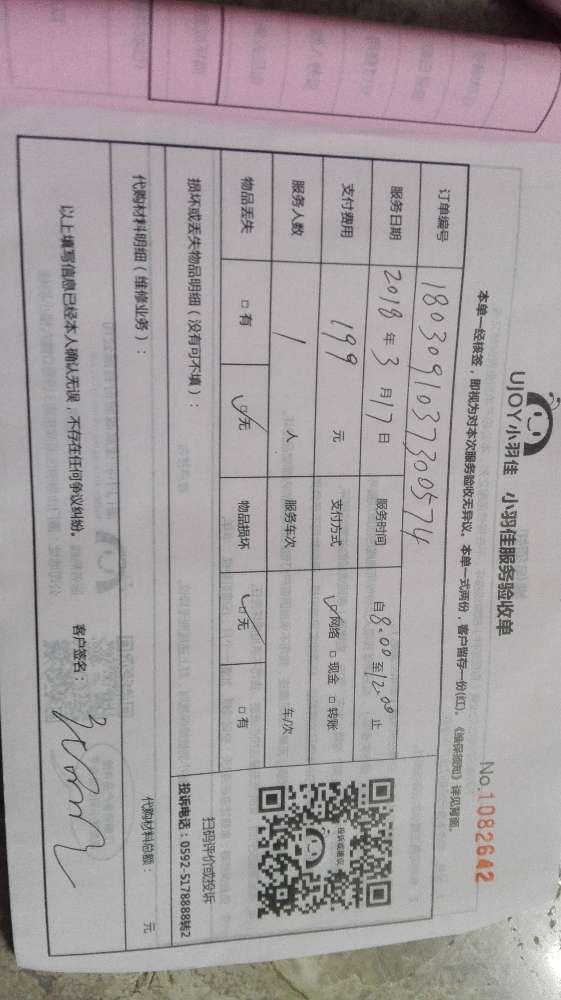 UJOY小羽佳 小羽佳服务验收单
No.1082642
本单一经核签，即视为对本次服务验收无异议。本单一式两份，客户留存一份(红)。《维保须知》详见背面。
订单编号 1803091037300574
服务日期 2018年3月17日 服务时间 自8:00至12:00止
支付费用 199元 支付方式 ☑网络 □现金 □转账
服务人数 1人 服务车次 车/次
物品丢失 □有 ☑无 物品损坏 ☑无 □有
扫码评价或投诉
投诉电话：0592-5178888转2
投诉或建议
损坏或丢失物品明细（没有可不填）：
代购材料明细（维修业务）：
代购材料总额： 元
以上填写信息已经本人确认无误，不存在任何争议纠纷。 客户签名：